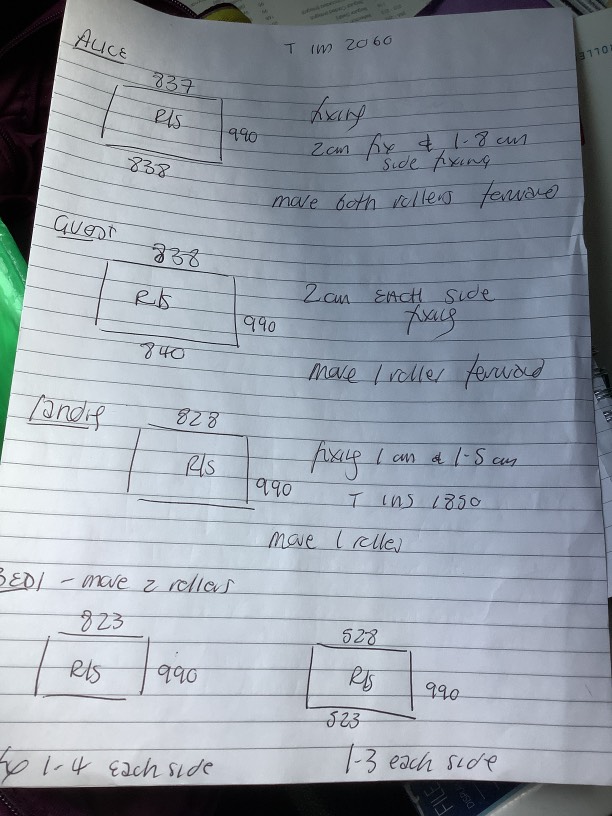 ALICE
T ins 2060
837
R/S
990
838
fixing
2cm fix & 1-8 cm
side fixing
move both rollers forward
GUEST
838
R/S
990
840
2cm EACH side
fixing
move 1 roller forward
landing
828
R/S
990
fixing 1 cm & 1-5 cm
T ins 1850
move 1 roller
BED1 - move 2 rollers
823
R/S
990
528
R/S
990
523
1-4 each side
1-3 each side
FILE